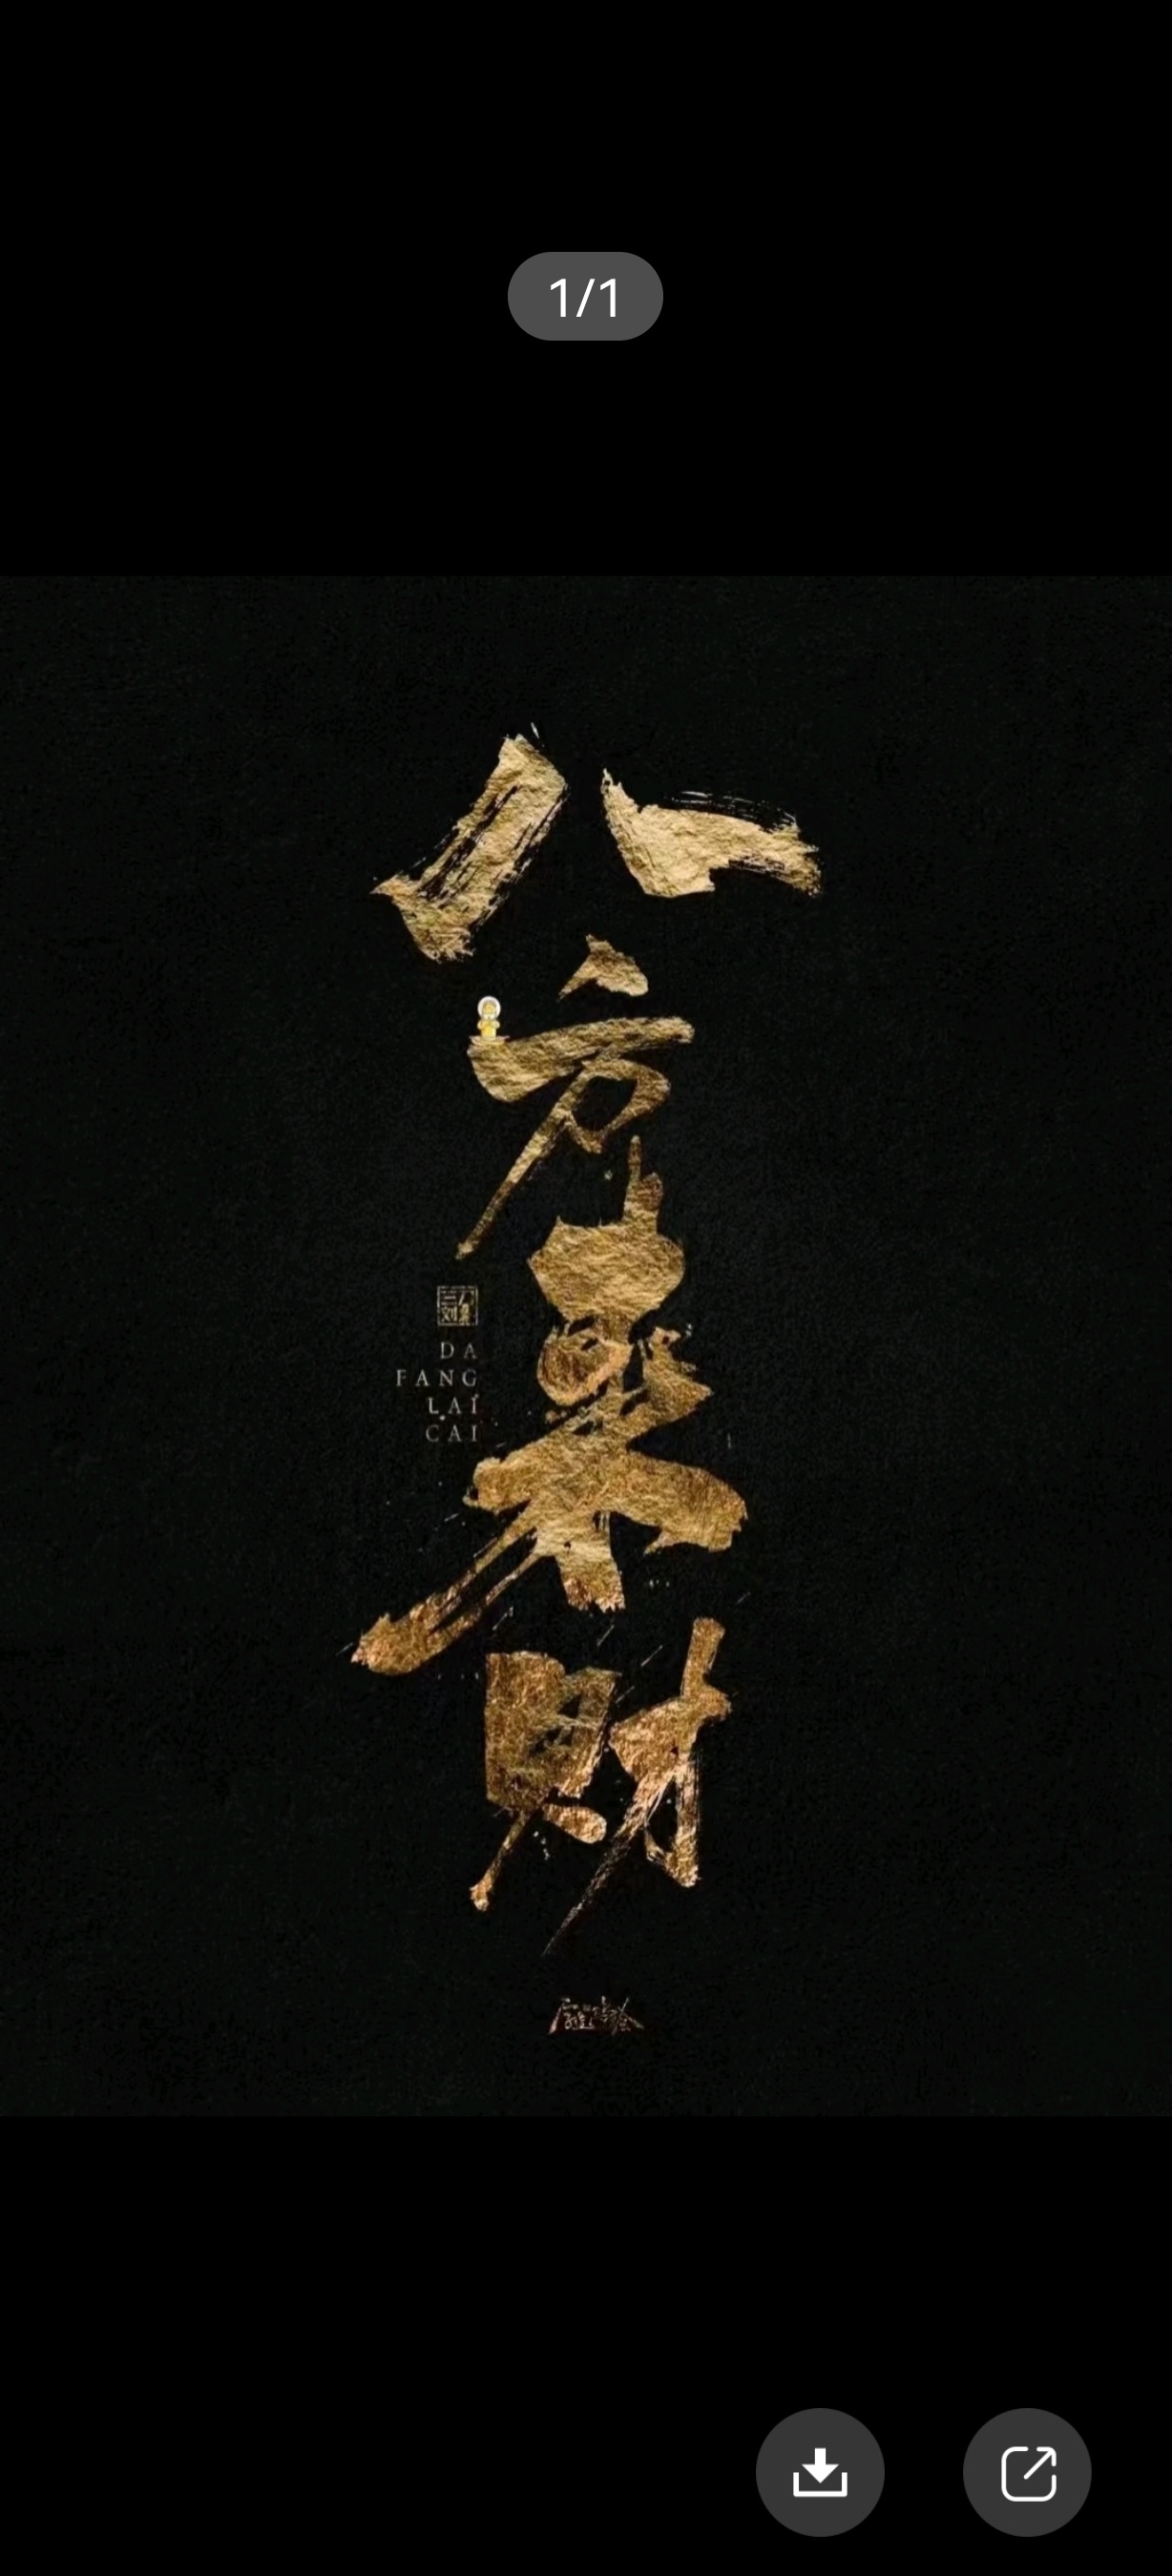 1/1
八
方
来
财
DA
FANG
LAI
CAI